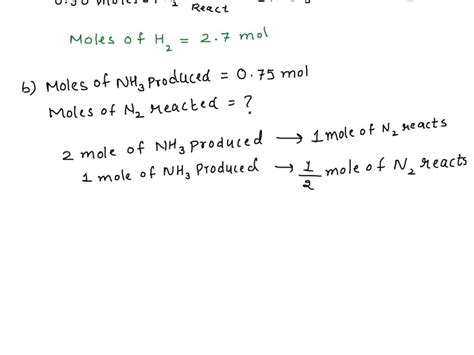 1 React
Moles of H2 = 2.7 mol
b) Moles of NH3 produced = 0.75 mol
Moles of N2 reacted = ?
2 mole of NH3 produced → 1 mole of N2 reacts
1 mole of NH3 Produced → 1/2 mole of N2 reacts